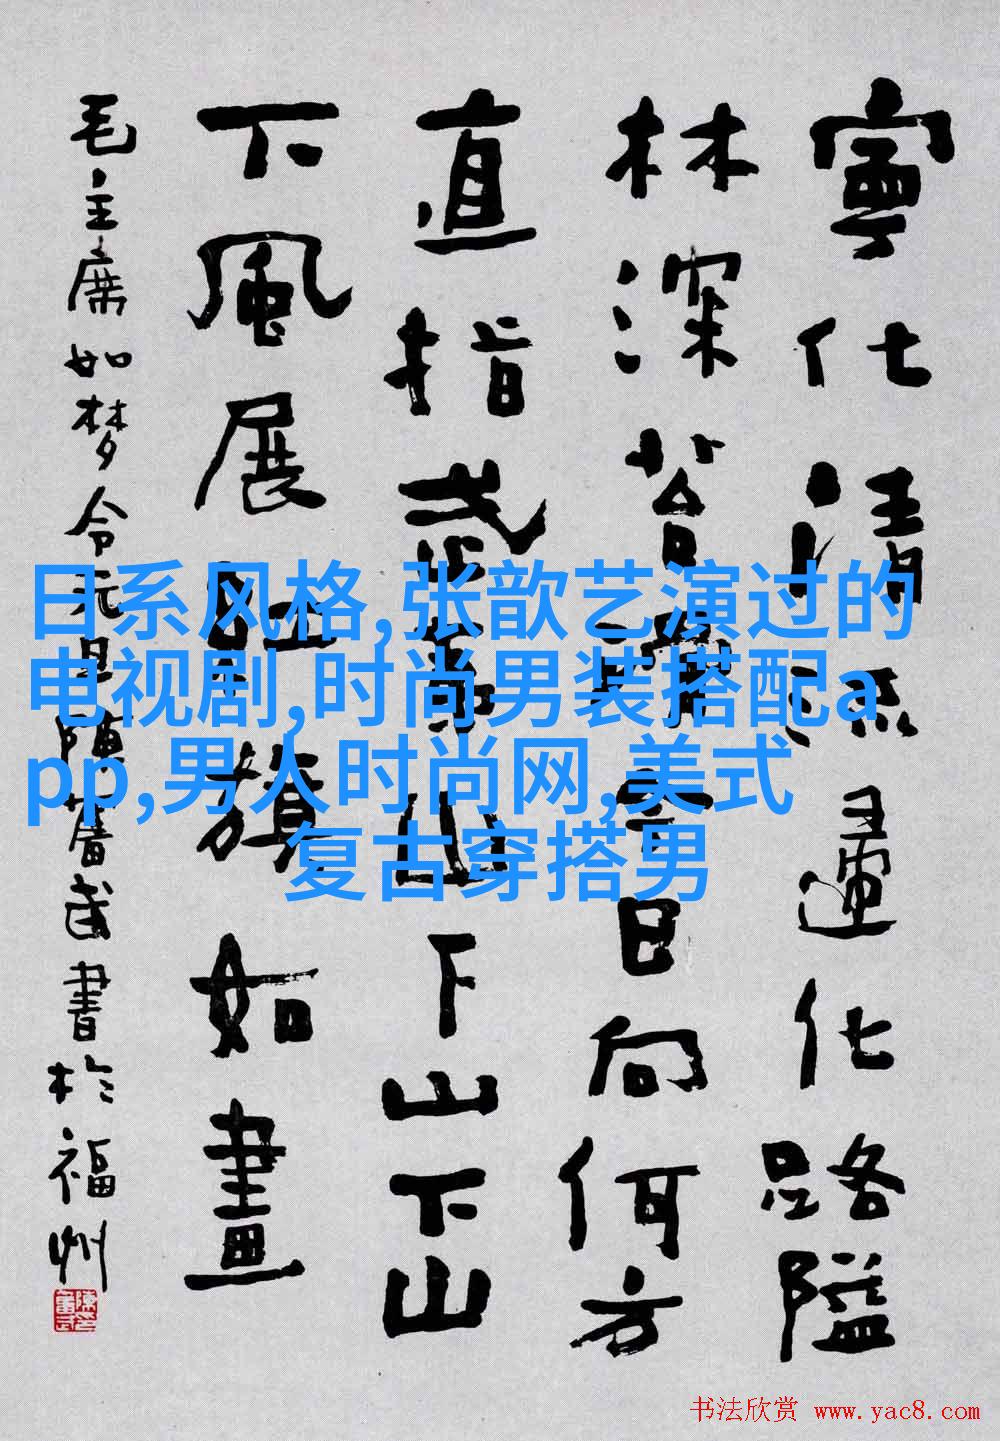 寧化清流歸化路隘
林深苔滑今日向何方
直指武夷山下山下山
下風展紅旗如畫
毛主席如梦令元旦陳奮武書於福州
日系风格,张歆艺演过的
电视剧,时尚男装搭配a
pp,男人时尚网,美式
复古穿搭男
书法欣赏 www.yac8.com